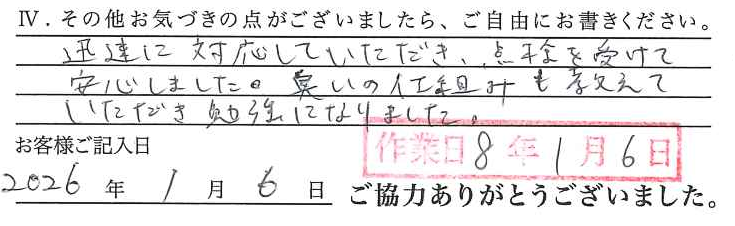 Ⅳ．その他お気づきの点がございましたら、ご自由にお書きください。
迅速に対応していただき、点検を受けて
安心しました。臭いの仕組みも教えて
いただき勉強になりました。
お客様ご記入日
作業日 8年1月6日
2026年1月6日 ご協力ありがとうございました。